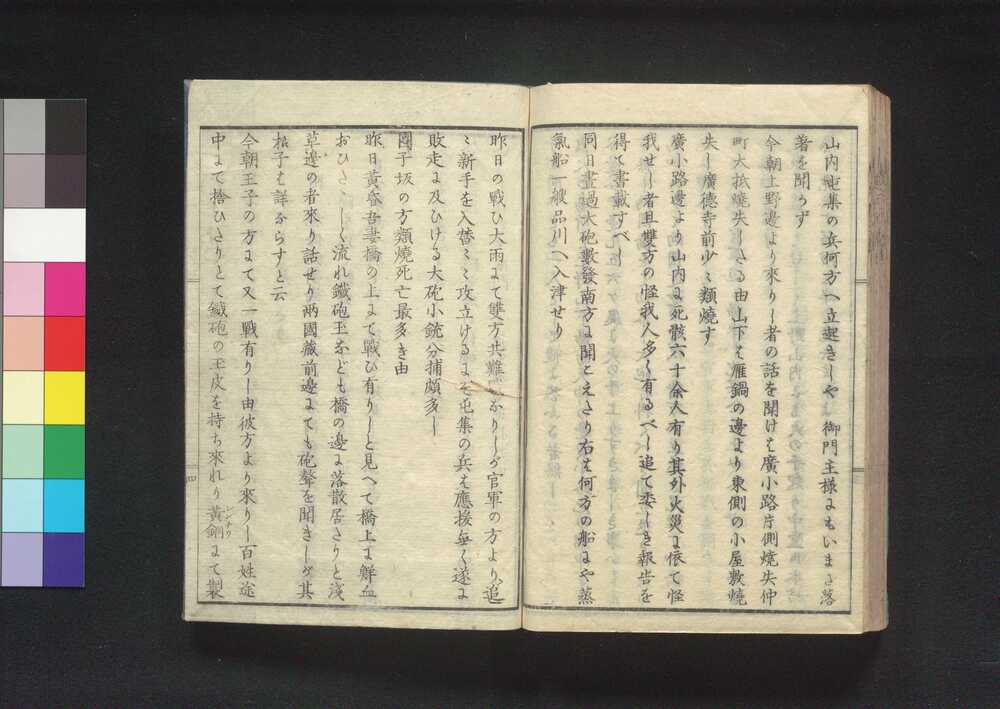 山内屯集の兵何方へ立退きしや御門主様にもいまだ落
着を聞かず
今朝上野邊より來りし者の話を聞けば廣小路片側燒失仲
町大抵燒失したる由山下は雁鍋の邊より東側の小屋敷燒
失し廣德寺前少々類燒す
廣小路邊より山内に死骸六十余人有り其外火災に依て怪
我せし者且雙方の怪我人多く有るべし追て委しき報告を
得て書載すべし
同日晝過大砲數發南方に聞こえたり右は何方の船にや蒸
氣船一艘品川へ入津せり
昨日の戰ひ大雨にて雙方共難
かりしが官軍の方より追
々新手を入替々々攻立けるにぞ屯集の兵は應援無く遂に
敗走に及びける大砲小銃分捕頗多し
團子坂の方類燒死亡最多き由
昨日黃昏吾妻橋の上にて戰ひ有りしと見へて橋上に鮮血
おびたゞしく流れ鐵砲玉なども橋の邊に落散居たりと淺
草邊の者來り話せり兩國藏前邊にても砲聲を聞きしが其
樣子は詳ならずと云
今朝王子の方にて又一戰有りし由彼方より來りし百姓途
中にて拾ひたりとて鐵砲の玉皮を持ち來れり黃銅にて製
シンチウ
四